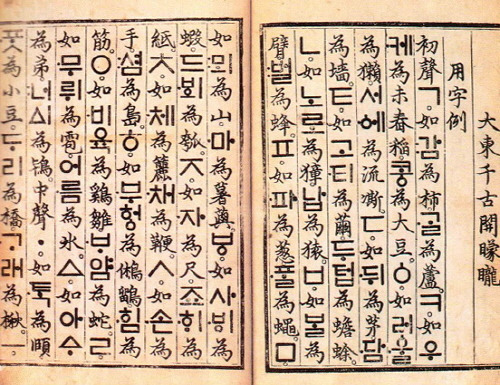 大東千古開矇矓
用字例
初聲ㄱ。如감為柿。ᄀᆞᆯ為蘆。ㅋ。如우
케為未舂稻。콩為大豆。ㆁ。如러울
為獺。서에為流凘。ㄷ。如뒤為茅。담
為墻。ㅌ。如고티為繭。두텁為蟾蜍。
ㄴ。如노로為獐。납為猿。ㅂ。如ᄇᆞᆯ為
臂。벌為蜂。ㅍ。如파為葱。ᄑᆞᆯ為蠅。ㅁ
如뫼為山。마為薯藇。ㅸ。如사ᄫᅵ為
蝦。드ᄫᅴ為瓠。ㅈ。如자為尺。죠ᄒᆡ為
紙。ㅊ。如체為籭。채為鞭。ㅅ。如손為
手。셤為島。ㅎ。如부헝為鵂鶹。힘為
筋。ㅇ。如비육為鷄雛。ᄇᆞ얌為蛇。ㄹ。
如무뤼為雹。어름為氷。ㅿ。如아ᅀᆞ
為弟。너ᅀᅵ為鴇。中聲ㆍ。如ᄐᆞᆨ為頤
ᄑᆞᆺ為小豆。ᄃᆞ리為橋。ᄀᆞ래為楸。ㅡ